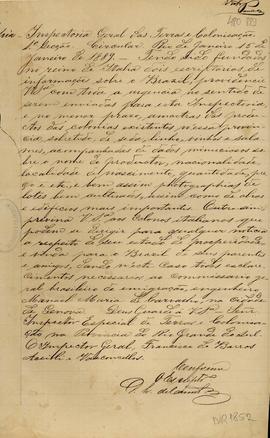 Inspectoria Geral das Terras e Colonisação
2ª Secção Circular Rio de Janeiro 15 de
Janeiro de 1889. Tendo sido fundado
no reino de Italia dois escriptorios de
informações sobre o Brazil, providencie
Vª com toda a urgencia no sentido de
serem enviadas para esta Inspectoria
e no menor prazo, amostras dos produ
ctos das colonias existentes nessa provin
cia,
mes, acompanhadas de dados minuciosos so
bre o nome do productor, nacionalidade,
localidade do nascimento, quantidade, pre
ço e etc. e bem assim photographias de
lotes bem cultivados,
e edificios mais importantes. Outro sim
previna Vª aos Colonos italianos que
podem se dirigir para qualquer noticia
a respeito de seu estado de prosperidade
e vinda para o Brazil de seus parentes
e amigos, dando neste caso todos esclare
cimentos necessarios ao Commissario ge
ral brazileiro de emigração, engenheiro
Manuel Maria de Carvalho na cidade
de Genova. Deus Guarde a Vª Senr.
Inspector Especial de Terras e Colonisa
ção na Provincia do Rio Grande do Sul.
O Inspector Geral, Francisco de Barros
Accioli de Vasconcellos.
Conforme
DVP.1852